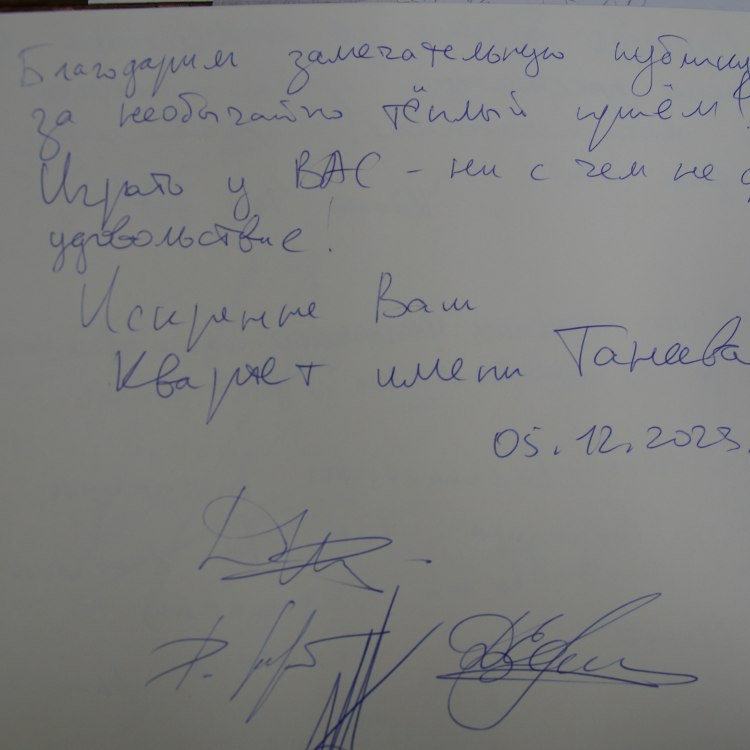 Благодарим замечательную публику
за необычайно тёплый приём!
Играть у ВАС - ни с чем не с
удовольствие!
Искренне Ваш
Квартет имени Танеева
05.12.2023.